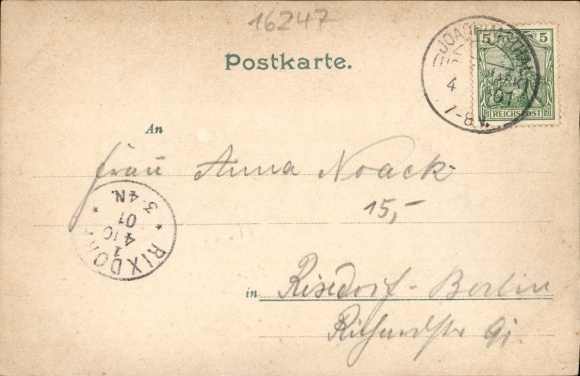 16247
Postkarte.
JOACHIMSTHAL
5 5
REICHSPOST
4
01
7-8V.
An
Frau Anna Noack
15,-
RIXDORF
1
4 10
01
3-4N.
in Rixdorf-Berlin
Richardstr 91.